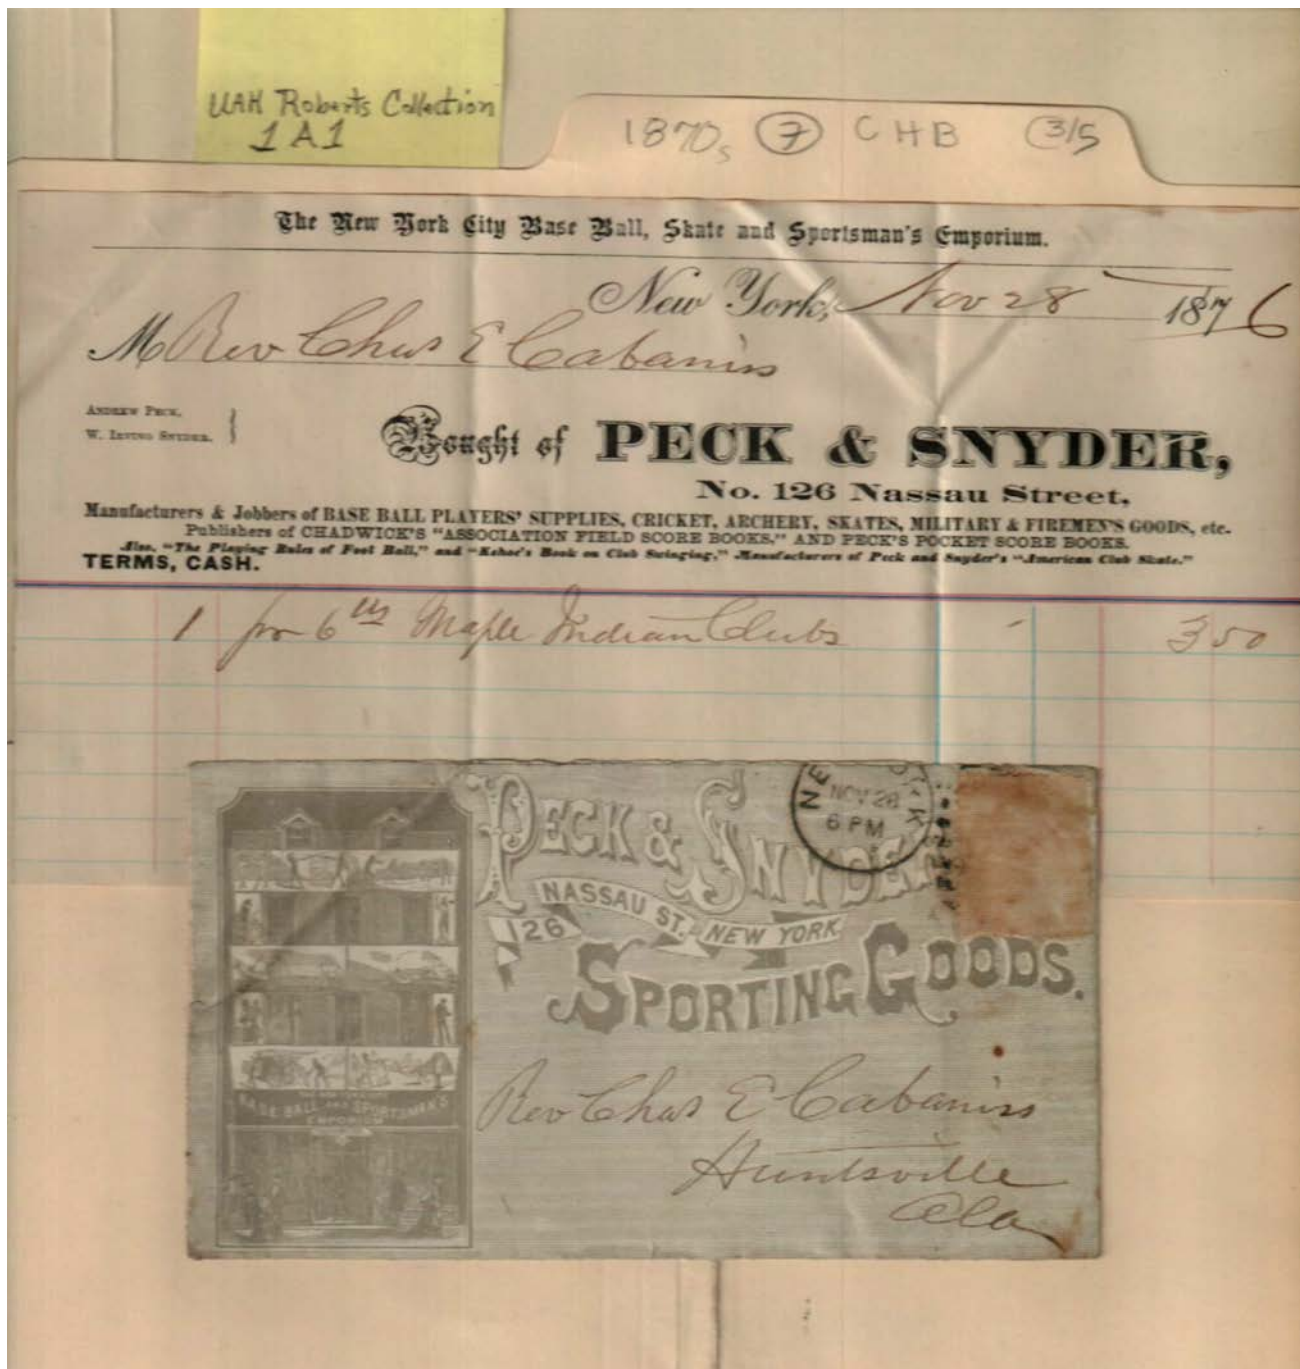 UAH Roberts Collection
1A1
1870s 7 CHB 3/5
The New York City Base Ball, Skate and Sportsman's Emporium.
New York, Nov 28 1876
M Rev Chas E Cabaniss
ANDREW PECK,
W. IRVING SNYDER.
Bought of PECK & SNYDER,
No. 126 Nassau Street,
Manufacturers & Jobbers of BASE BALL PLAYERS' SUPPLIES, CRICKET, ARCHERY, SKATES, MILITARY & FIREMEN'S GOODS, etc.
Publishers of CHADWICK'S "ASSOCIATION FIELD SCORE BOOKS," AND PECK'S POCKET SCORE BOOKS.
Also, "The Playing Rules of Foot Ball," and "Kehoe's Book on Club Swinging," Manufacturers of Peck and Snyder's "American Club Skate."
TERMS, CASH.
1 pr 6 lbs Maple Indian Clubs 3 50
PECK & SNYDER
126 NASSAU ST. NEW YORK
SPORTING GOODS.
NOV 28
6 PM
BASE BALL AND SPORTSMEN'S
EMPORIUM
Rev Chas E Cabaniss
Huntsville
Ala